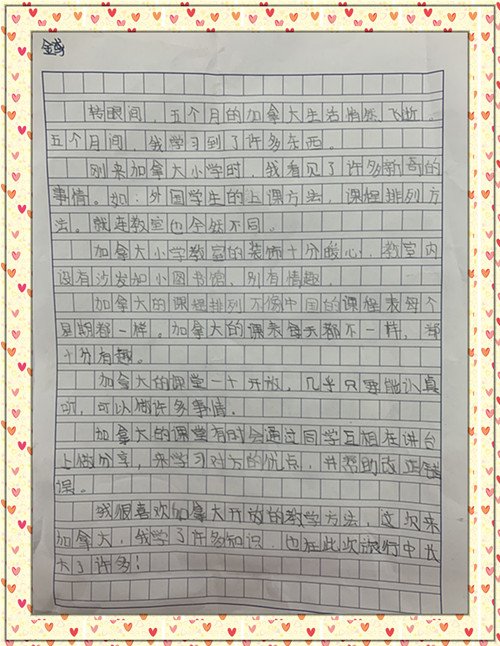 转眼间，五个月的加拿大生活悄然飞逝。
五个月间，我学习到了许多东西。
刚来加拿大小学时，我看见了许多新奇的
事情。如：外国学生的上课方法，课程排列方
法。就连教室也全然不同。
加拿大小学教室的装饰十分暖心，教室内
设有沙发加小图书馆，别有情趣。
加拿大的课程排列不像中国的课程表每个
星期都一样。加拿大的课表每天都不一样，都
十分有趣。
加拿大的课堂一十开放，几乎只要能认真
听，可以做许多事情。
加拿大的课堂有时会通过同学互相在讲台
上做分享，来学习对方的优点，并帮助改正错
误。
我很喜欢加拿大开放的教学方法，这次来
加拿大，我学了许多知识，也在此次旅行中长
大了许多！